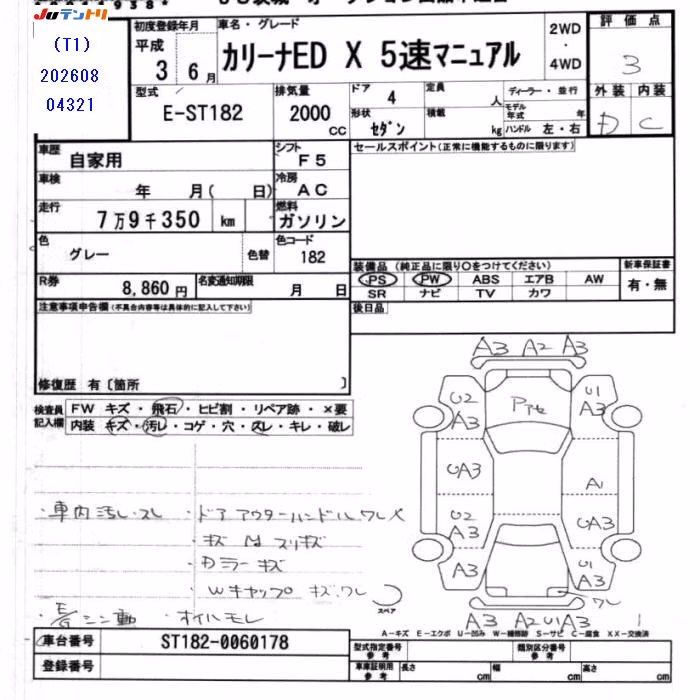 JUテントリ
(T1)
202608
04321
初度登録年月 平成 3 6月
車名・グレード カリーナED X 5速マニュアル
2WD・4WD
評価点 3
外装 D 内装 C
型式 E-ST182
排気量 2000 CC
ドア 4
形状 セダン
定員 人
積載 kg
ディーラー・並行
モデル年式 年
ハンドル 左・右
車歴 自家用
シフト F5
セールスポイント(正常に機能するものに限ります)
車検 年 月( 日)
冷房 AC
走行 7万9千350 km
燃料 ガソリン
色 グレー 色替
色コード 182
装備品 (純正品に限り○をつけてください)
PS PW ABS エアB AW
SR ナビ TV カワ
新車保証書 有・無
R券 8,860円
名変通知期限 月 日
後日品
注意事項申告欄(不具合内容等は具体的に記入して下さい)
修復歴 有〔箇所 〕
検査員記入欄
FW キズ・飛石・ヒビ割・リペア跡・×要
内装 キズ・汚レ・コゲ・穴・スレ・キレ・破レ
A3 A2 A3
U2 A3
U1 A3
Pアセ
UA3
A1
U2 A3
UA3
A3
U1 A3
ワレ
A3 A2 U1 A3
・車内汚レ・スレ
・ドアアウターハンドルワレ×
・キズ 凹 スリキズ
・Dミラーキズ
・Wキャップ キズ、ワレ
スペア
・E/Gシン動 ・オイルモレ
A−キズ E−エクボ U−凹み W−補修跡 S−サビ C−腐食 XX−交換済
車台番号 ST182-0060178
登録番号
型式指定番号 参考
類別区分番号 参考
車庫証明用 参考
長さ cm 幅 cm 高さ cm